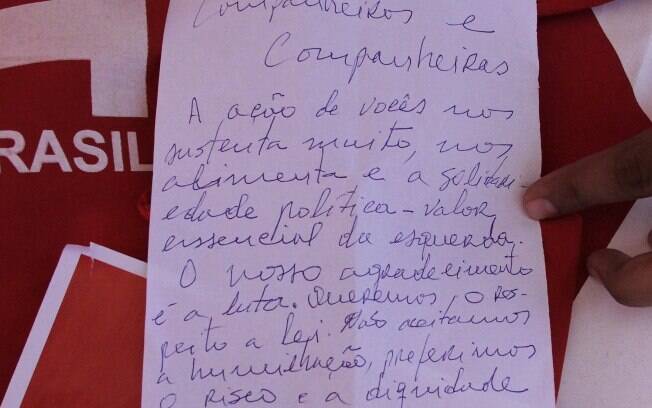 Companheiros e
Companheiras
A ação de vocês nos
sustenta muito, nos
alimenta e a solidari-
edade política - valor,
essencial da esquerda.
O nosso agradecimento
é a luta. Queremos, o res-
peito a lei. Não aceitamos
a humilhação, preferimos
o risco e a dignidade
RASIL